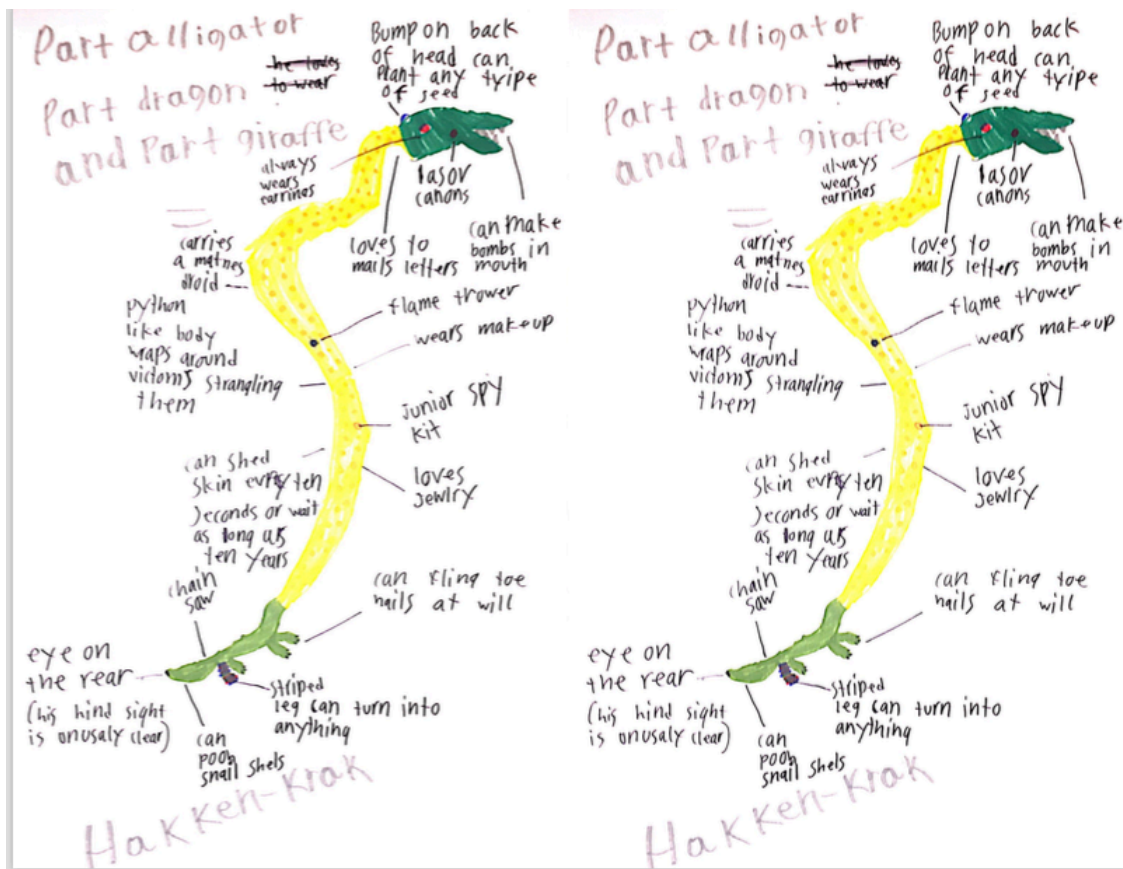 Part alligator
Part dragon
and Part giraffe
he loves
to wear
Bump on back
of head can
Plant any tyipe
of seed
always
wears
earrings
lasor
canons
can make
bombs in
mouth
loves to
mails letters
carries
a matnes
droid
flame trower
wears makeup
python
like body
wraps around
victoms strangling
them
junior spy
kit
can shed
skin evry ten
seconds or wait
as long us
ten years
loves
jewlry
chain
saw
can fling toe
nails at will
eye on
the rear
(his hind sight
is onusaly clear)
striped
leg can turn into
anything
can
poob
snail shels
Hakken-Krak
Part alligator
Part dragon
and Part giraffe
he loves
to wear
Bump on back
of head can
Plant any tyipe
of seed
always
wears
earrings
lasor
canons
can make
bombs in
mouth
loves to
mails letters
carries
a matnes
droid
flame trower
wears makeup
python
like body
wraps around
victoms strangling
them
junior spy
kit
can shed
skin evry ten
seconds or wait
as long us
ten years
loves
jewlry
chain
saw
can fling toe
nails at will
eye on
the rear
(his hind sight
is onusaly clear)
striped
leg can turn into
anything
can
poob
snail shels
Hakken-Krak